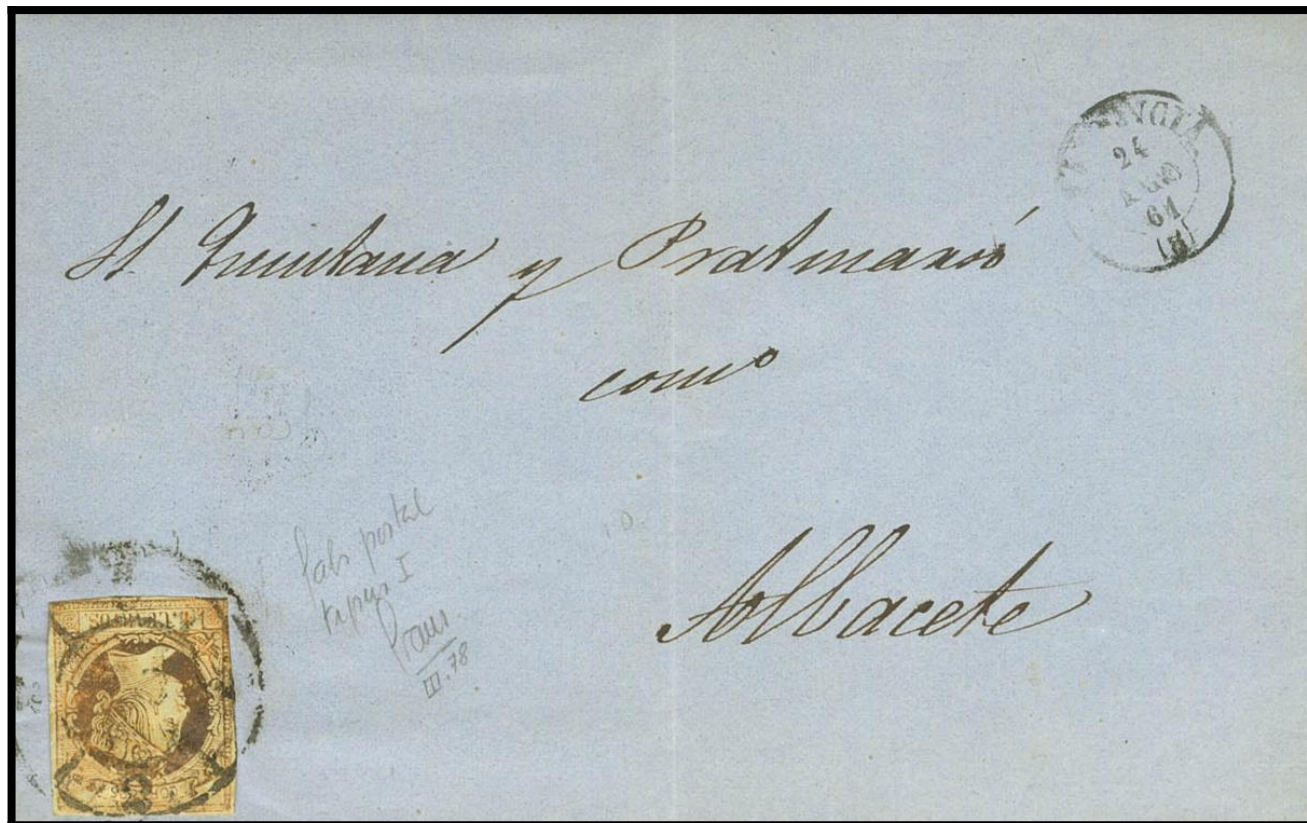 24
AGO
61
St Quintana y Pratmarsó
com^o
Albacete
fals postal
tipus I
III.78